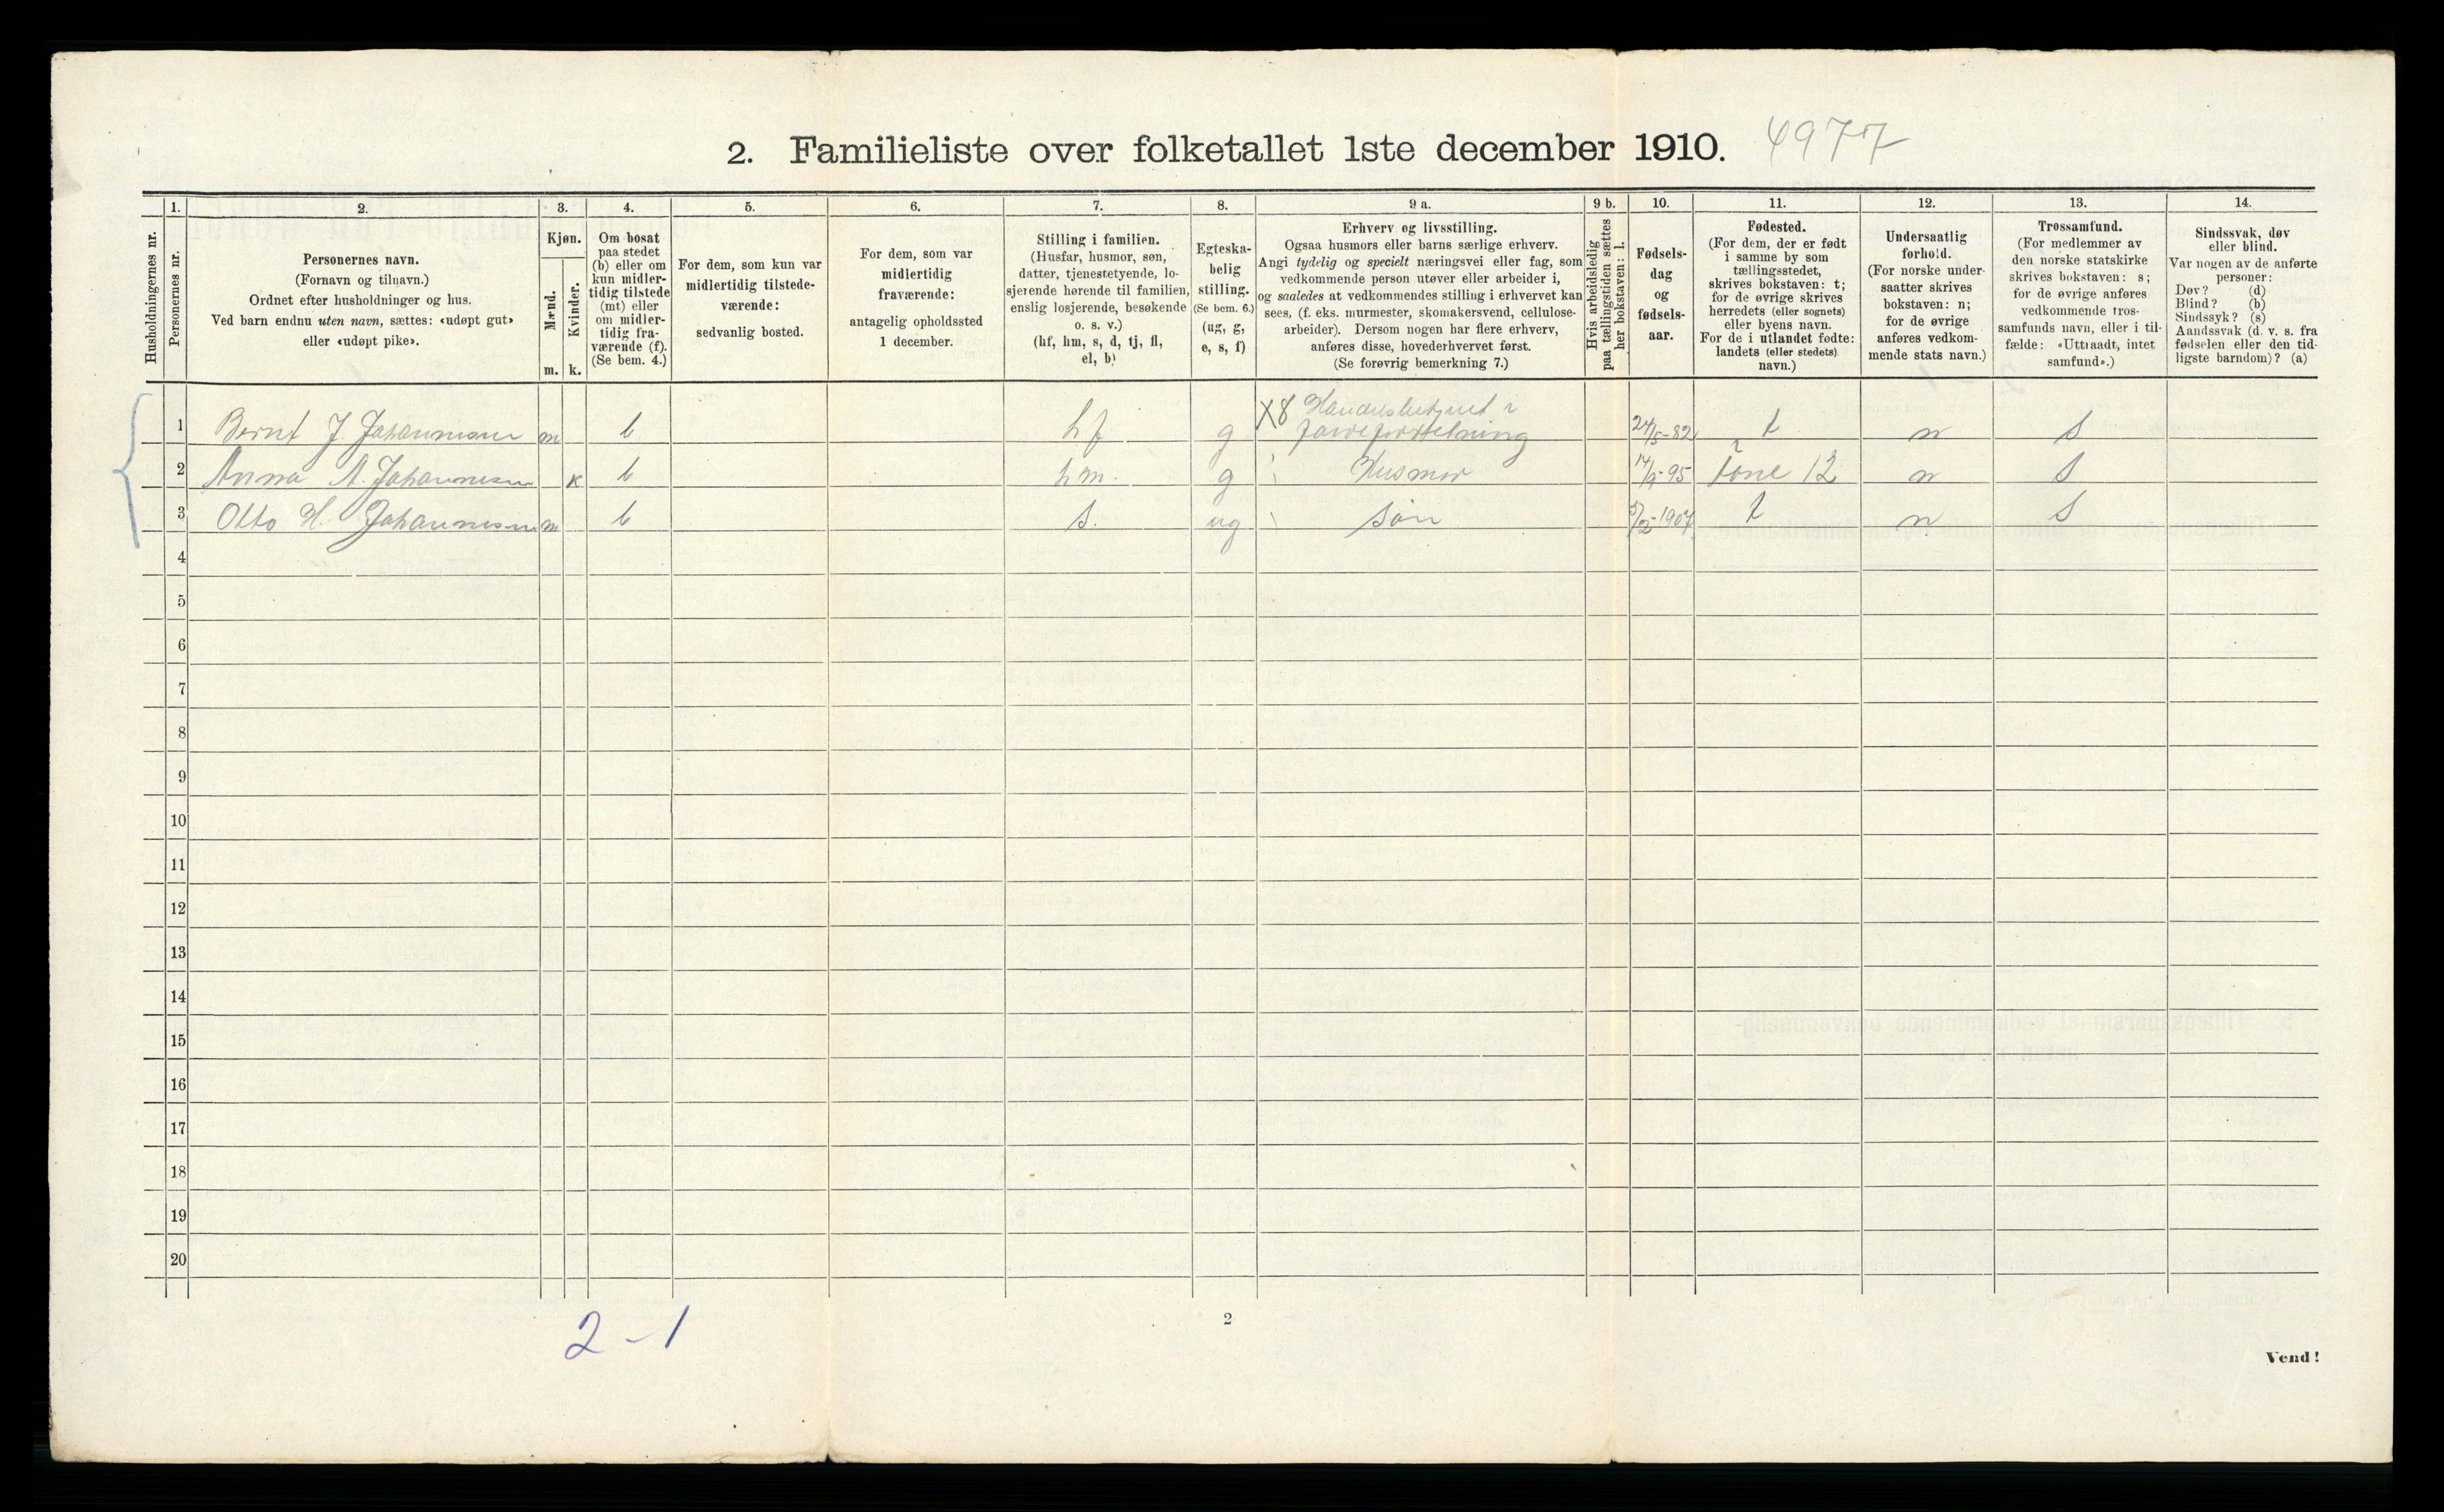 2. Familieliste over folketallet 1ste december 1910. 4977
1. 2. 3. 4. 5. 6. 7. 8. 9 a. 9 b. 10. 11. 12. 13. 14.
Husholdningernes nr.
Personernes nr.
Personernes navn.
(Fornavn og tilnavn.)
Ordnet efter husholdninger og hus.
Ved barn endnu uten navn, sættes: «udøpt gut»
eller «udøpt pike».
Kjøn.
Mænd.
Kvinder.
m. k.
Om bosat
paa stedet
(b) eller om
kun midler-
tidig tilstede
(mt) eller
om midler-
tidig fra-
værende (f).
(Se bem. 4.)
For dem, som kun var
midlertidig tilstede-
værende:
sedvanlig bosted.
For dem, som var
midlertidig
fraværende:
antagelig opholdssted
1 december.
Stilling i familien.
(Husfar, husmor, søn,
datter, tjenestetyende, lo-
sjerende hørende til familien,
enslig losjerende, besøkende
o. s. v.)
(hf, hm, s, d, tj, fl,
el, b)
Egteska-
belig
stilling.
(Se bem. 6.)
(ug, g,
e, s, f)
Erhverv og livsstilling.
Ogsaa husmors eller barns særlige erhverv.
Angi tydelig og specielt næringsvei eller fag, som
vedkommende person utøver eller arbeider i,
og saaledes at vedkommendes stilling i erhvervet kan
sees, (f. eks. murmester, skomakersvend, cellulose-
arbeider). Dersom nogen har flere erhverv,
anføres disse, hovederhvervet først.
(Se forøvrig bemerkning 7.)
Hvis arbeidsledig
paa tællingstiden sættes
her bokstaven: l.
Fødsels-
dag
og
fødsels-
aar.
Fødested.
(For dem, der er født
i samme by som
tællingsstedet,
skrives bokstaven: t;
for de øvrige skrives
herredets (eller sognets)
eller byens navn.
For de i utlandet fødte:
landets (eller stedets)
navn.)
Undersaatlig
forhold.
(For norske under-
saatter skrives
bokstaven: n;
for de øvrige
anføres vedkom-
mende stats navn.)
Trossamfund.
(For medlemmer av
den norske statskirke
skrives bokstaven: s;
for de øvrige anføres
vedkommende tros-
samfunds navn, eller i til-
fælde: «Uttraadt, intet
samfund».)
Sindssvak, døv
eller blind.
Var nogen av de anførte
personer:
Døv? (d)
Blind? (b)
Sindssyk? (s)
Aandssvak (d. v. s. fra
fødselen eller den tid-
ligste barndom)? (a)
1 Bernt J. Johannesen m b hf g X8 Handelsbetjent i farveforretning 24/5-82 t n s
2 Anna A. Johannesen k b hm. g Husmor n s
3 Otto H. Johannesen m b s. ug Søn t n s
4
5
6
7
8
9
10
11
12
13
14
15
16
17
18
19
20
2 - 1
2
Vend!